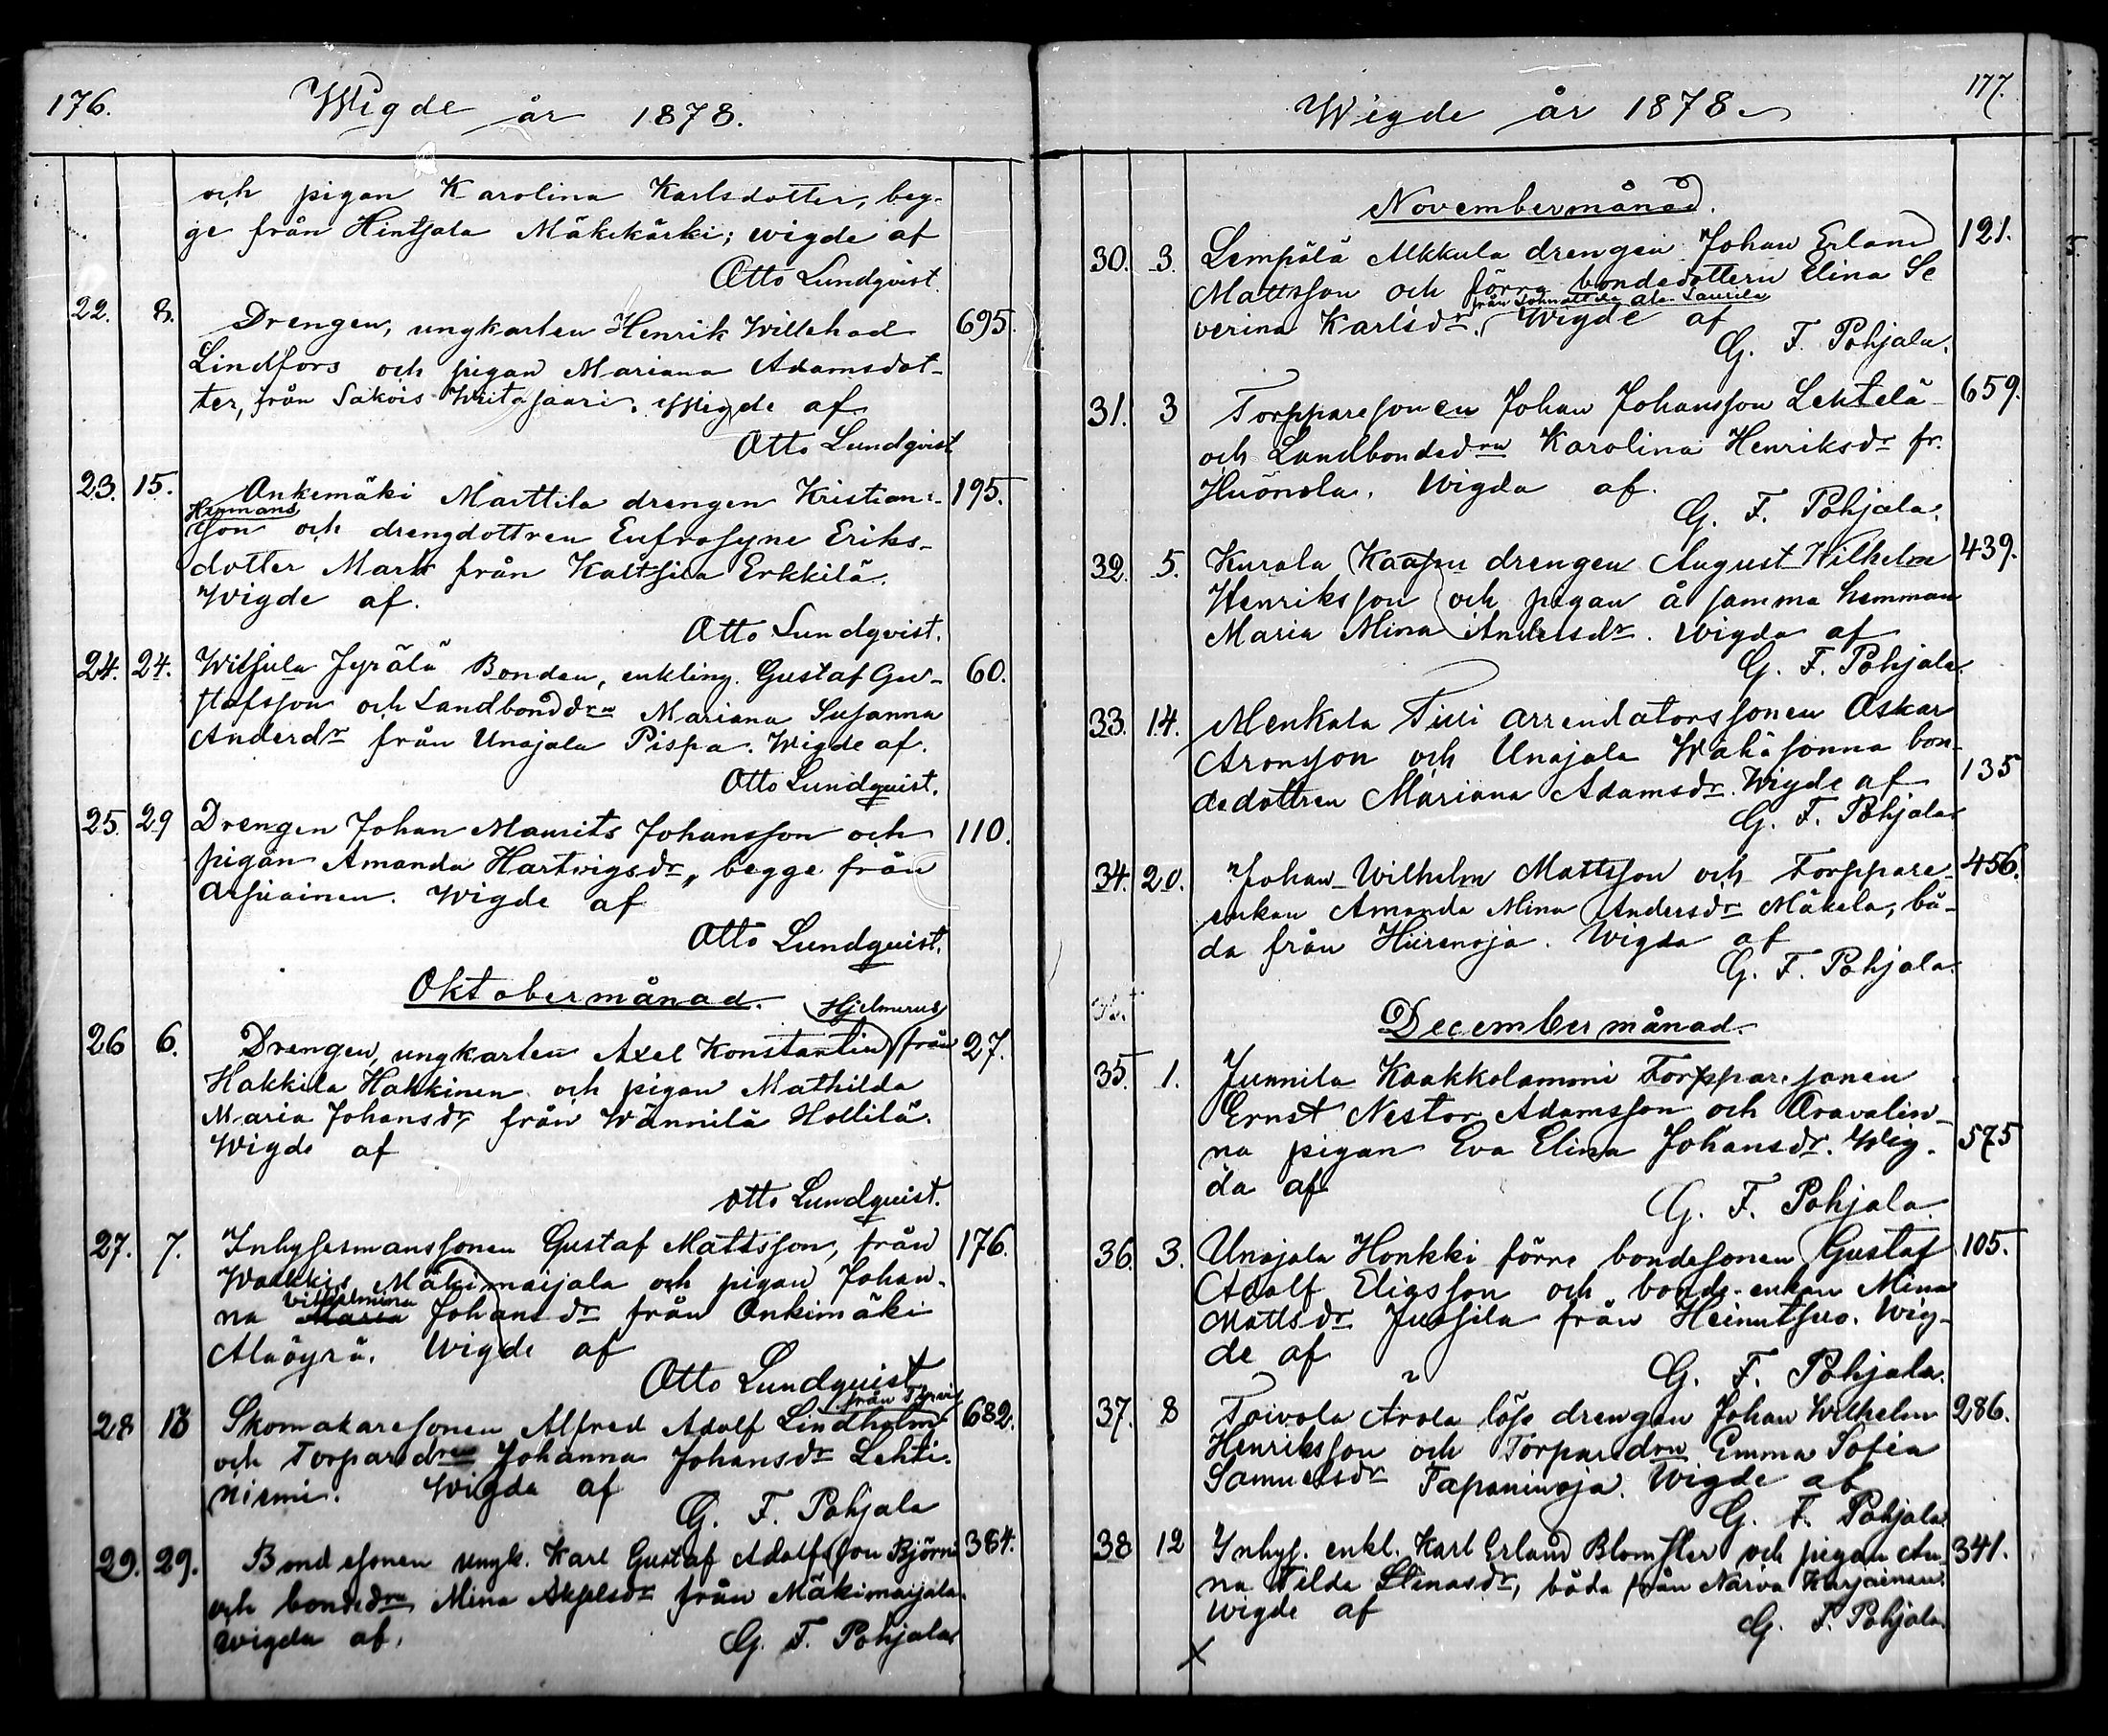 176.
Wigde år 1878.
och pigan Karolina Karlsdotter, beg-
ge från Hintsala Mäkikärki; wigde af
Otto Lundqvist.
22. 8. Drengen, ungkarlen Henrik Willehad 695.
Lindfors och pigan Mariana Adamsdot-
ter, från Sakois Wiitasaari. Wigde af
Otto Lundqvist
23. 15. Ankemäki Marttila drengen Kristian 195.
Hermans
son och drengdottren Eufrosyne Eriks-
dotter Mark från Kaltsila Erkkilä.
Wigde af.
Otto Lundqvist.
24. 24. Witsula Jyrälä Bonden, enkling. Gustaf Gu- 60.
stafsson och Landbonddrn Mariana Susanna
Andersdr från Unajala Pispa. Wigde af.
Otto Lundquist.
25. 29 Drengen Johan Maurits Johansson och 110.
pigan Amanda Hartvigsdr, begge från
Wigde af
Otto Lundquist.
Oktobermånad.
Hjelmerus
26 6. Drengen, ungkarlen Axel Konstantin från 27.
Hakkila Hakkinen och pigan Mathilda
Maria Johansdr från Wännilä Hollilä.
Wigde af
Otto Lundquist.
27. 7. Inhysesmanssonen Gustaf Mattsson, från 176.
Waskkis Mäkimaijala och pigan Johan-
Vilhelmina
na Maria Johansdr från Ankimäki
Alaöyrä. Wigde af
Otto Lundquist
från Tyrvis
28 13 Skomakaresonen Alfred Adolf Lindholm 682.
och Torparedren Johanna Johansdr Lehti-
niemi. Wigda af
G. F. Pohjala
29. 29. Bondesonen ungk. Karl Gustaf Adolfsson Björni 384.
och bondedrn Mina Akselsdr från Mäkimaijala
wigda af.
G. F. Pohjala
177.
Wigde år 1878
Novembermånad.
30. 3. Lempälä Alkkula drengen Johan Erland 121.
Mattsson och förra bondedottern Elina Se
från ala Laurila
verina Karlsdr. Wigde af
G. F. Pohjala.
31. 3 Torpparesonen Johan Johansson Lehtelä 659.
och Landbondedrn Karolina Henriksdr fr.
Wigda af.
G. F. Pohjala.
32. 5. Kurala Kaapu drengen August Wilhelm 439.
Henriksson och pigan å samma hemman
Maria Mina Andersdr. Wigda af
G. F. Pohjala.
33. 14. Menkala Tiiri arrendatorssonen Oskar
Aronsson och Unajala Wähäsonna bon-
dedottren Mariana Adamsdr. Wigde af 135
G. F. Pohjala
34. 20. Johan Wilhelm Mattsson och Torppare- 456.
enkan Amanda Mina Andersdr Mäkelä, bå-
da från Hiirenoja. Wigda af
G. F. Pohjala.
Decembermånad.
35. 1. Junnila Kaakkolammi Torpparesonen
Ernst Nestor Adamsson och Oravalin-
na pigan Eva Elina Johansdr. Wig- 575
da af
G. F. Pohjala.
36. 3. Unajala Honkki förre bondesonen Gustaf 105.
Adolf Eliasson och bonde-enkan Mina
Mattsdr Jussila från Heinutsuo. Wig-
de af
G. F. Pohjala.
37. 8 Toivola Arola löse drengen Johan Wilhelm 286.
Henriksson och Torparedrn Emma Sofia
Samuelsdr Tapaninoja. Wigde af
G. F. Pohjala.
38 12 Inhys. enkl. Karl Erland Blomster och pigan An- 341.
na Tilda Stenasdr, båda från Narva Karjainen.
Wigde af
G. F. Pohjala